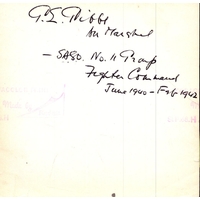 G.E. Gibbs
Air Marshal
- SASO. No. 11 Group
Fighter Command
June 1940 - Feb 1942